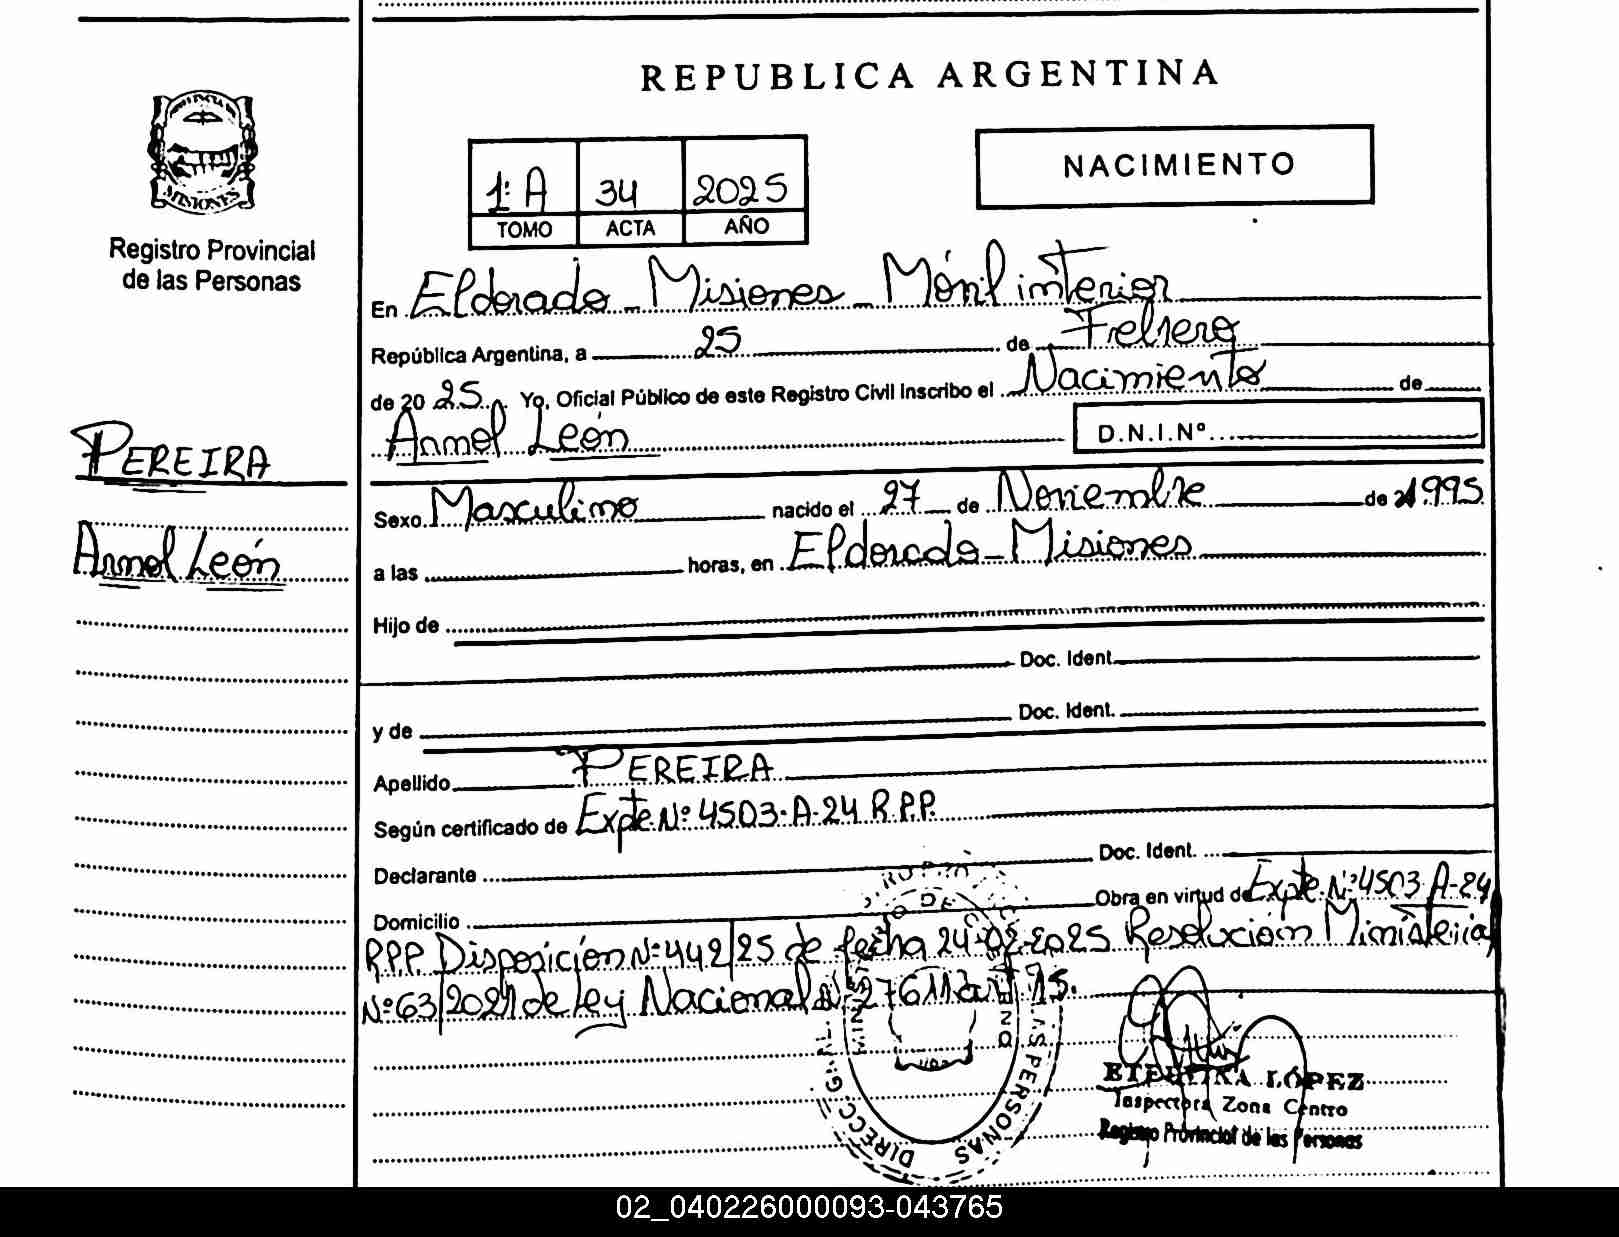 REPUBLICA ARGENTINA
MISIONES
Registro Provincial
de las Personas
1ª A 34 2025
TOMO ACTA AÑO
NACIMIENTO
En Eldorado - Misiones - Móvil interior
República Argentina, a 25 de Febrero
de 2025. Yo, Oficial Público de este Registro Civil Inscribo el Nacimiento de
León
D.N.I.Nº
PEREIRA
León
Sexo Masculino nacido el 27 de Noviembre de 1995
a las horas, en Eldorado - Misiones
Hijo de
Doc. Ident.
y de Doc. Ident.
Apellido PEREIRA
Según certificado de Expte. Nº 4503-A-24 R.P.P.
Declarante Doc. Ident.
Domicilio Obra en virtud de Expte. Nº 4503-A-24
RPP Disposición Nº 442/25 de fecha 24-02-2025 Resolución Ministerial
Nº 63/2021 de Ley Nacional Nº 27611 art 15.
DIRECC. G
AS PERSONAS
LÓPEZ
Inspectora Zona Centro
Registro Provincial de las Personas
02_040226000093-043765